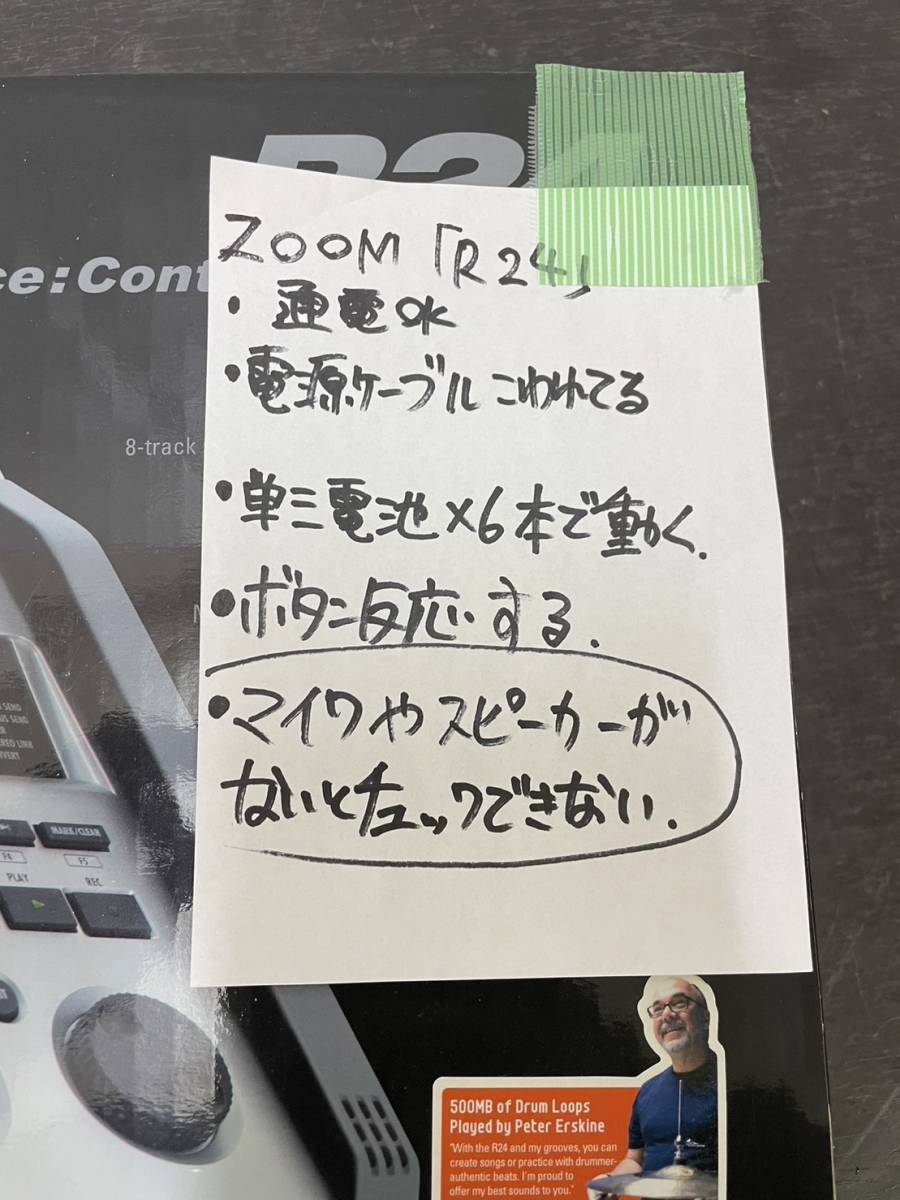 R24
ce:Cont
8-track
ZOOM「R24」
・通電OK
・電源ケーブルこわれてる
・単三電池×6本で動く.
・ボタン反応する.
・マイクやスピーカーが
ないとチェックできない.
SEND
SEND
STEREO LINK
INVERT
MARK/CLEAR
F4
F5
PLAY
REC
500MB of Drum Loops
Played by Peter Erskine
"With the R24 and my grooves, you can
create songs or practice with drummer-
authentic beats. I'm proud to
offer my best sounds to you."